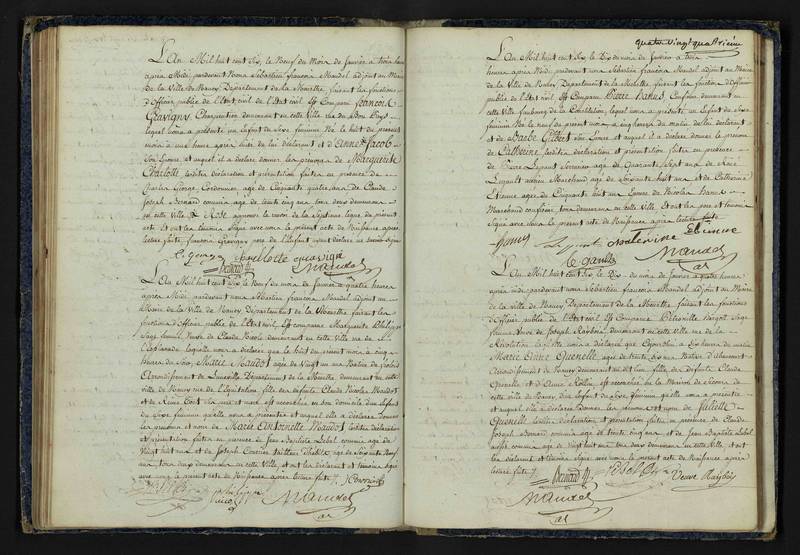 L'An Mil huit cent dix, le Neuf du Mois de Janvier à trois heures
après Midi pardevant Nous Sébastien françois Mandel adjoint au Maire
de la Ville de Nancy Département de la Meurthe, faisant les fonctions
d'Officier public de l'Etat civil Est Comparu francois
Gravigny, Charpentier demeurant en cette Ville rue du
lequel nous a présenté un Enfant du Sexe féminin Né le huit du présent
mois à une heure après midi de lui déclarant et d'Anne Jacob
Son Epouse et auquel il a déclaré donner les prénoms de Marguerite
Charlotte lesdites déclaration et présentation faites en présence de
Charles George Cordonnier agé de Cinquante quatre ans et de Claude
Joseph Bernard commis agé de trente cinq ans tous deux demeurans
en cette ville
acte Et ont les témoins Signé avec nous le présent acte de Naissance après
lecture faite françois Gravigny père de l'Enfant ayant déclaré ne savoir signer
C. george
Bernard
Mandel
L'An Mil huit cent dix, le Neuf du mois de Janvier à quatre heures
après Midi, pardevant nous Sébastien francois Mandel, adjoint au
Maire de la Ville de Nancy, Département de la Meurthe faisant les
fonctions d'Officier public de l'Etat civil, Est comparue Marguerite Philippe
Sage femme, Veuve de Claude Nicole demeurant en cette Ville rue de
l'Esplanade laquelle nous a déclaré que le huit du présent mois à cinq
heures du Soir, Marie Maudot agée de Vingt un ans Native de
Arrondissement de Lunéville Département de la Meurthe demeurant en cette
ville de Nancy rue de l'Equitation fille des défunts Claude Nicolas Maudot
et de Reine est accouchée en son domicile d'un Enfant
du Sexe féminin qu'elle nous a présenté et auquel elle a déclaré donner
les prénoms et nom de Marie Antoinette Maudot lesdites déclaration
et présentation faites en présence de Jean Baptiste Lebel commis agé de
Vingt huit ans et de Joseph tailleur d'habits agé de Soixante Neuf
ans, tous deux demeurans en cette Ville, et ont les déclarant et témoins Signé
avec nous le présent acte de Naissance après lecture faite
Mandel
quatre vingt quatrième
L'An Mil huit cent dix, le Dix du mois de Janvier à trois
heures après Midi pardevant nous Sébastien francois Mandel adjoint au Maire
de la Ville de Nancy Département de la Meurthe faisant les fonctions d'Officier
public de l'Etat civil Est Comparu Pierre Hanus, Confiseur demeurant en
cette Ville faubourg de la Constitution, lequel nous a présenté un Enfant du Sexe
féminin Né le neuf du présent mois à cinq heures du matin de lui déclarant
et de Barbe Gilbert Son Epouse et auquel il a déclaré donner le prénom
de Catherine lesdites déclaration et présentation faites en présence
de Pierre Lepaut Serrurier agé de Quarante Sept ans de René
Lepault ancien Marchand agé de Soixante huit ans et de Catherine
Etienne agée de Cinquante huit ans Epouse de Nicolas Hanus
Marchand confiseur tous demeurans en cette Ville. Et ont les père et témoins
Signé avec nous le présent acte de Naissance après lecture faite
Hanus
Catherine Etienne
Mandel
L'An Mil huit cent dix, le Dix du mois de Janvier à quatre heures
après midi pardevant nous Sébastien francois Mandel adjoint au Maire
de la ville de Nancy Département de la Meurthe faisant les fonctions
d'Officier public de l'Etat civil, Est Comparue Pétronille Sage
femme Veuve de Joseph demeurant en cette Ville rue de la
Révolution laquelle nous a déclaré que Cejourd'hui à Six heures du matin
Marie Anne Quenelle agée de trente Six ans Native
Arrondissement de Nancy demeurant au dit lieu fille des défunts Claude
Quenelle et d'Anne est accouchée en la Maison de Secours de
cette ville de Nancy, d'un Enfant du Sexe féminin qu'elle nous a présenté
et auquel elle a déclaré donner les prénom et nom de Juliette
Quenelle lesdites déclaration et présentation faites en présence de Claude
Joseph Bernard commis agé de trente cinq ans et de Jean Baptiste Lebel
aussi commis agé de Vingt huit ans Tous deux demeurans en cette Ville, et ont
les déclarant et témoins Signé avec nous le présent acte de Naissance après
lecture faite
Bernard
Veuve
Mandel